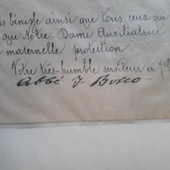 bénisse ainsi que tous ceux qui
que Notre Dame Auxiliatrice
maternelle protection.
Votre très-humble serviteur en J
Abbé J Bosco